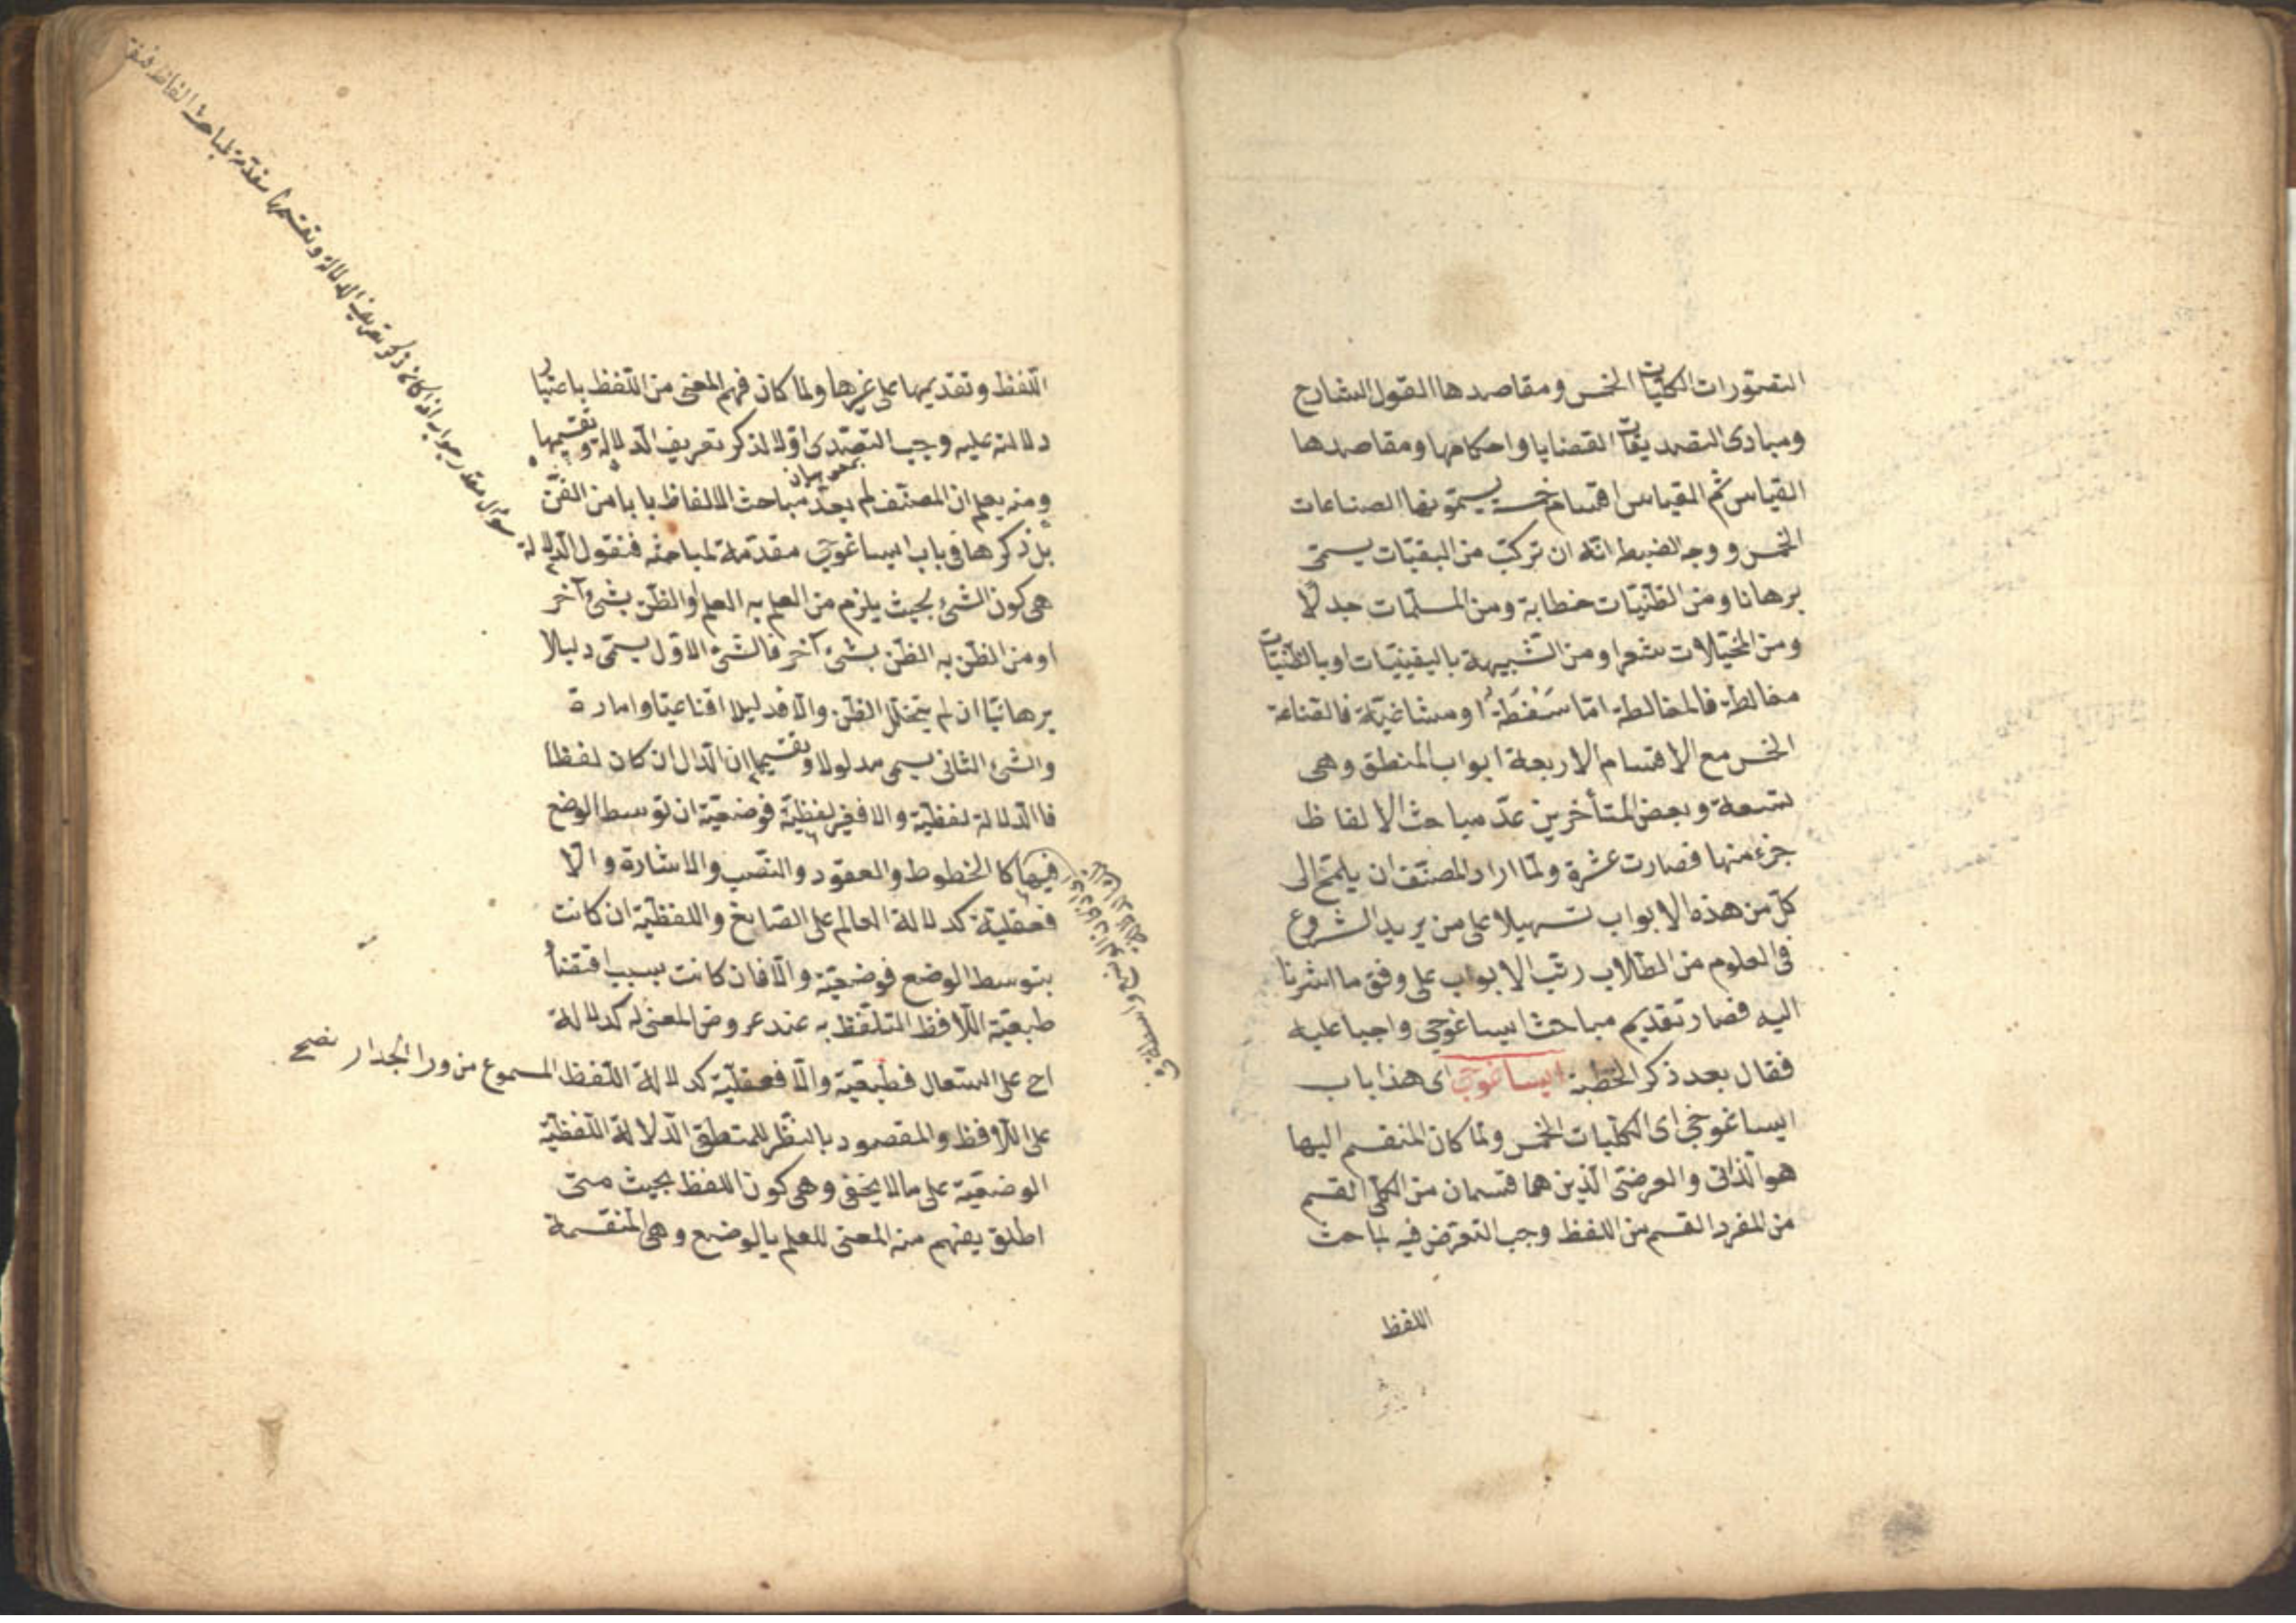 التصورات الكليات الخمس ومقاصدها القول الشارح
ومبادى التصديقات القضايا واحكامها ومقاصدها
القياس ثم القياس اقسام خمسة يسمونها الصناعات
الخمس ووجه الضبط انّه ان تركّب من اليقنيّات يسمّى
برهانا ومن الظنّيّات خطابة ومن المسلّمات جدلًا
ومن المخيّلات شعرا ومن الشّبيهة باليقينيّات او بالظنّيّات
مغالطة فالمغالطة امّا سَفْسَطَة او مشاغبيّة فالقناعة
الخمس مع الاقسام الاربعة ابواب المنطق وهى
تسعة وبعض المتأخرين عدّ مباحث الالفاظ
جزء منها فصارت عشرة ولمّا اراد المصنّف ان يلمّح الى
كلّ من هذه الابواب تسهيلا على من يريد الشروع
فى العلوم من الطّلاب رتّب الابواب على وفق ما اشرنا
اليه فصار تقديم مباحث ايساغوجى واجبا عليه
فقال بعد ذكر الخطبة ايساغوجى اى هذا باب
ايساغوجى اى الكلّيات الخمس ولمّا كان المنقسم اليها
هو الذّاتى والعرضىّ الّذين هما قسمان من الكلّى القسم
من المفرد القسم من اللفظ وجب التعرّض فيه لمباحث
اللفظ
اللّفظ وتقديمها على غيرها ولما كان فهم المعنى من اللّفظ باعتبار
دلالته عليه وجب التصّدى اوّلا لذكر تعريف الّدلالة وتقسيمها
بمعنى بيان
ومنه يعلم ان المصنّف لم يعدّ مباحث الالفاظ بابا من الفنّ
بل ذكرها فى باب ايساغوجى مقدّمة لمباحثه فنقول الّدلالة
هى كون الشئ بحيث يلزم من العلم به العلم او الظّن بشئ آخر
او من الظّن به الظّن بشئ آخر فالشّئ الاوّل يسمّى دليلا
برهانيّا ان لم يتخلّل الظّن والّا فدليلا اقناعيّا وامارة
والشئ الثانى يسمى مدلولا وتقسيمها ان الّدال ان كان لفظا
فاالّدلالة لفظيّة والا فغير لفظيّة فوضعيّة ان توسط الوضع
فيها كا الخطوط والعقود والنّصب والاشارة والّا
فعقليّة كدلالة العالم على الصّانع واللفظيّة ان كانت
بتوسط الوضع فوضعيّة والّا فان كانت بسبب اقتضأ
طبعيّة اللّافظ المتلّفظ به عند عروض المعنى له كدلالة
اح على السّعال فطبيعّية والّا فعقليّة كدلالة اللّفظ المسموع من ورا الجدار نصح
على اللّافظ والمقصود بالنّظر للمنطقى الّدلالة اللّفظيّة
الوضعيّة على ما لا يخفى وهى كون اللفظ بحيث متى
اطلق يفهم منه المعنى للعلم بالوضع وهى المنقسمة
سؤال مقدر جواب اذا كان ذكر تعريف الدلالة وتقسيمها مقدّمة لمباحث الفاظ فنقو